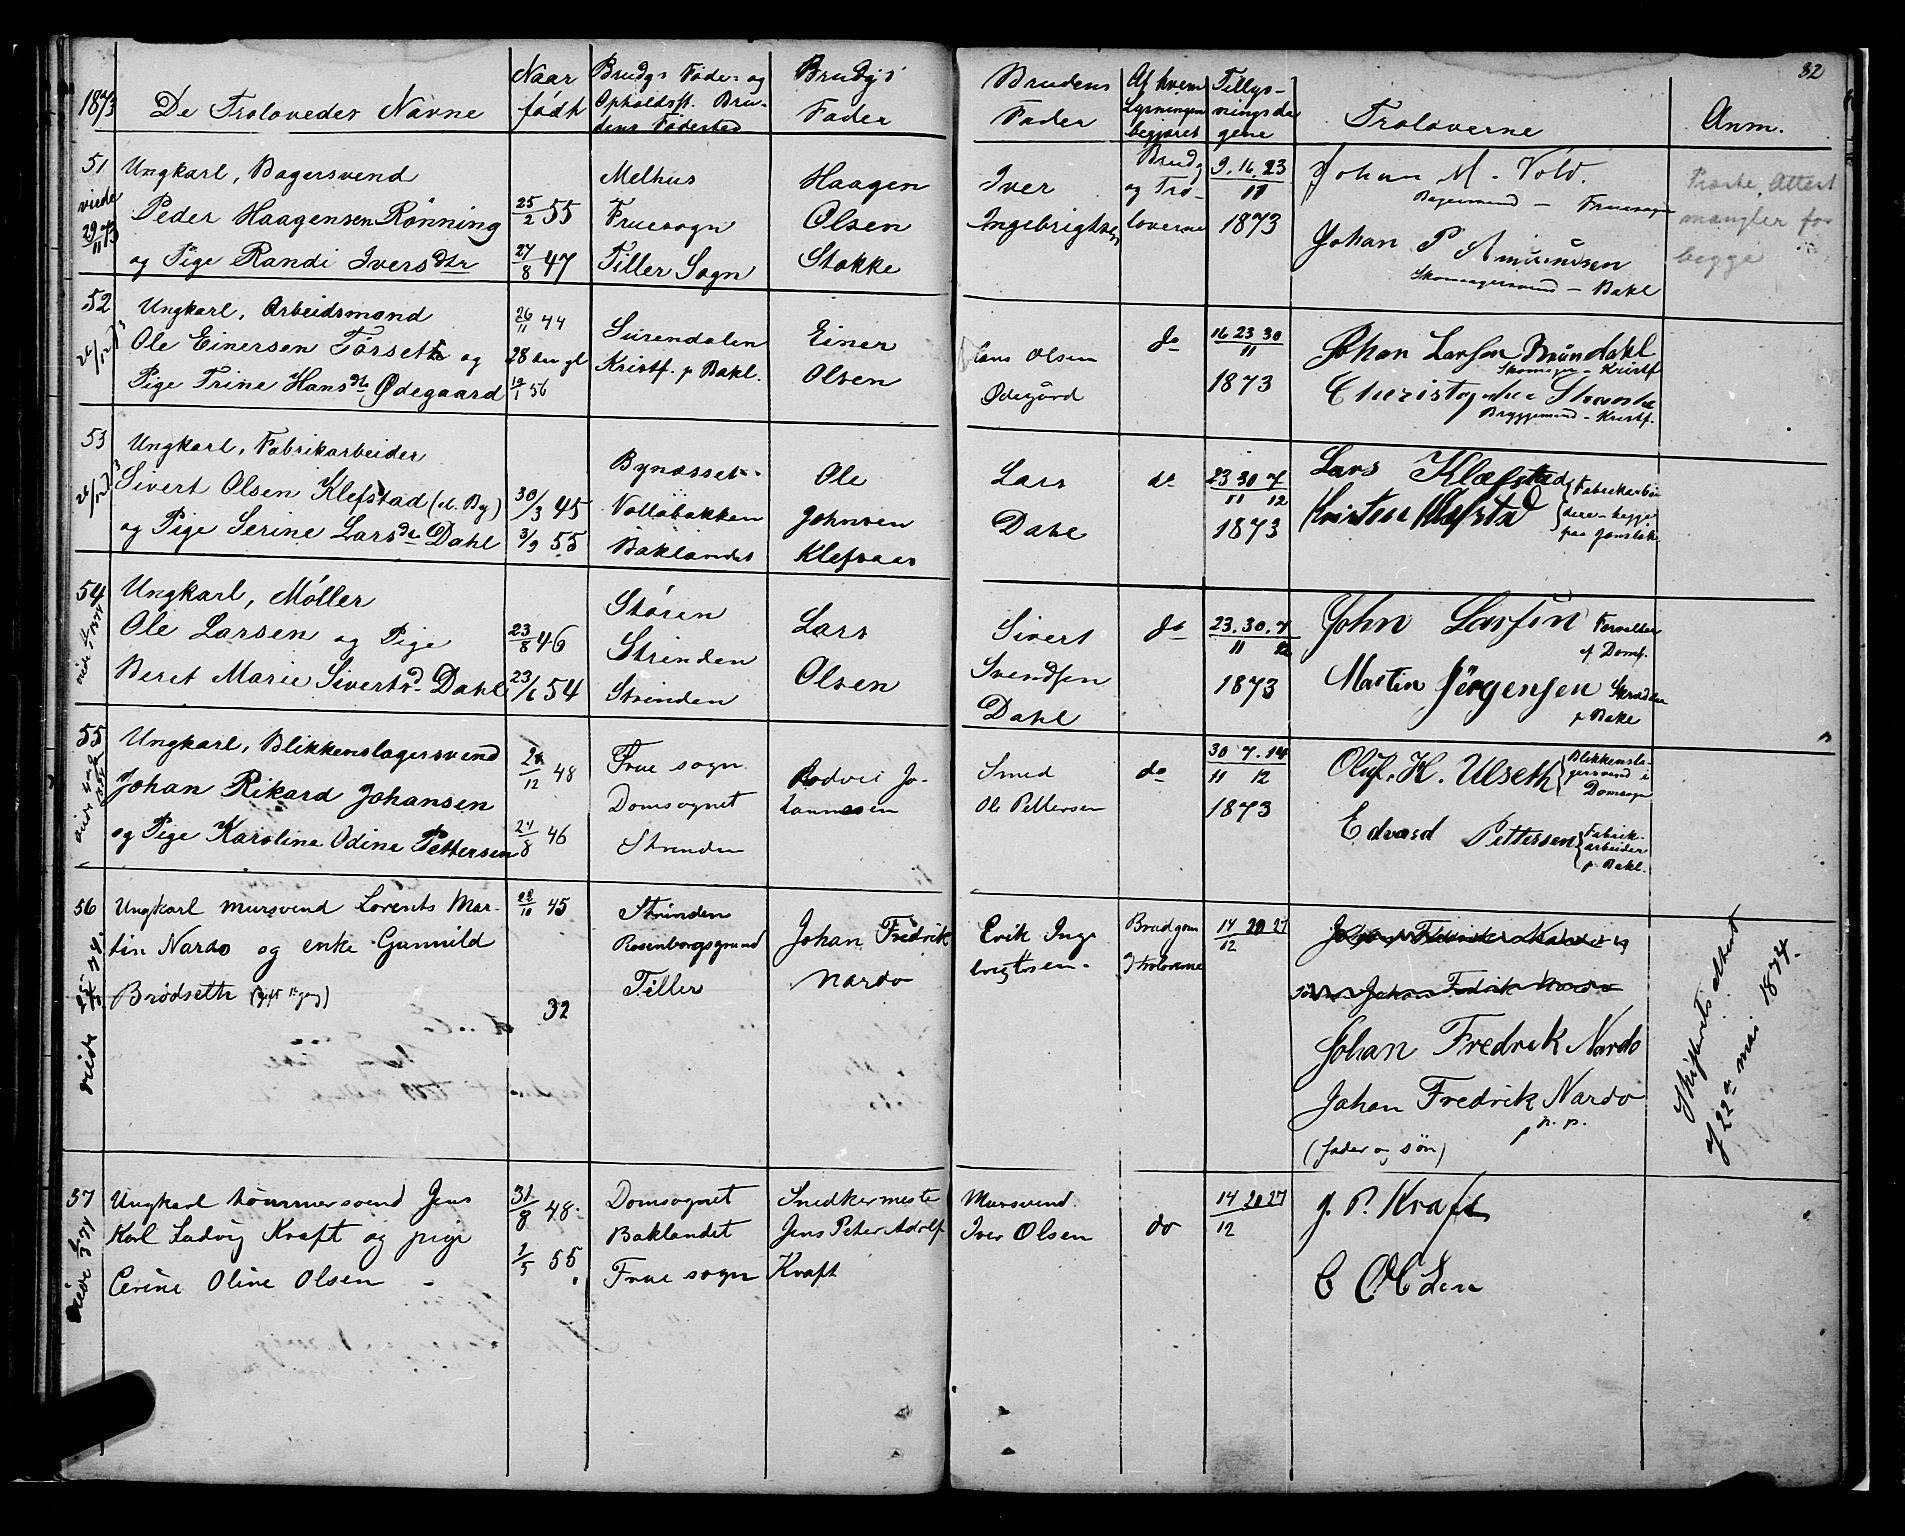 32
1873
De Trolovedes Navne
Naar født
Brudgs Føde- og Opholdsst. Brudens Fødested
Brudgs Fader
Brudens Fader
Af hvem Lysningen begjæret
Tillysningsdagene
Troloverne
Anm.
51
viede 29/11 73
Ungkarl, Bagersvend
Peder Haagensen Rønning
og Pige Randi Iversdtr
25/2 55
27/8 47
Melhus
Fruesogn
Tiller Sogn
Haagen
Olsen
Stokke
Iver
Ingebrigtsen
Brudg
og Tro-
loverne
9. 16. 23
11
1873
Johan M. Vold.
Bagersvend – Fruesogn
Johan P Amundsen
Skomagersvend – Bakl
Attest
mangler for
begge
52
Ungkarl, Arbeidsmand
Ole Einersen Torseth og
Pige Trine Hansdtr Ødegaard
26/11 44
28 Aar gl
10/1 56
Surendalen
Kristf. p Bakl.
Einer
Olsen
Hans Olsen
Ødegård
do
16 23 30
11
1873
Johan Larsen Brundahl
Kristf
Bryggemand – Kristf.
53
Ungkarl, Fabrikarbeider
Sivert Olsen Klefstad (d. By)
og Pige Serine Larsdtr Dahl
30/3 45
3/9 55
Bynæsset
Vollabakken
Baklandet
Ole
Johnsen
Klefsaas
Lars
Dahl
do
23 30 7
11 12
1873
Lars Klæfstad
Kristen Klefstad
Fabrikarbei
dere – begge
paa
54
Ungkarl, Møller
Ole Larsen og Pige
Beret Marie Sivertsd Dahl
23/8 46
23/6 54
Støren
Strinden
Strinden
Lars
Olsen
Sivert
Svendsen
Dahl
do
23. 30. 7
11 12
1873
John Larsen Forvalter
p Domf.
Martin Jørgensen
p Bakl
55
Ungkarl, Blikkenslagersvend
Johan Rikard Johansen
og Pige Karoline Odine Pettersen
12 48
24/8 46
Frue sogn
Domsognet
Strinden
Jo-
hannesen
Smed
Ole Pettersen
do
30 7. 14
11 12
1873
Oluf. H. Ulseth
Blikkensla-
gersvend i
Domsogn
Edvard Pettersen
Fabrik-
arbeider
p. Bakl.
56
viede
Ungkarl mursvend Lorents Mar-
tin Nardo og enke Gunnild
Brødseth (gift 1ste gang)
10 45
32
Strinden
Rosenborgsgrund
Tiller
Johan Fredrik
Nardo
Erik Inge
brigtsen.
Brudgom
Troloverne
14 20 27
12
Johan Fredrik Nardo
Johan Fredrik Nardo
p. n. p.
(fader og søn)
Skifterets adkomst
af 22de mai 1874.
57
viede
Ungkarl tømmersvend Jens
Karl Ludvig Kraft og pige
Cerine Oline Olsen
31/8 48
1/5 55
Domsognet
Baklandet
Frue sogn
Snedkermeste
Jens Peter Adolf
Kraft
Mursvend
Iver Olsen
do
14 20 27
12
J. P. Kraft
C Olsen